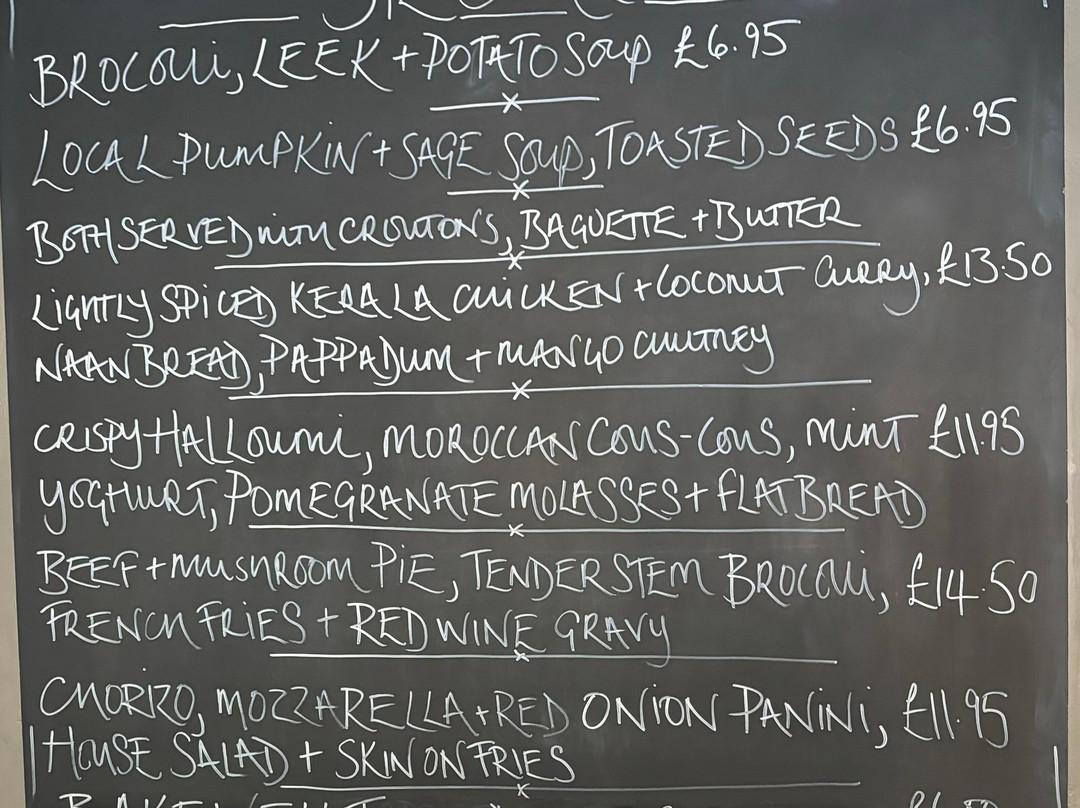 BROCOLLI, LEEK + POTATO SOUP £6.95
LOCAL PUMPKIN + SAGE SOUP, TOASTED SEEDS £6.95
BOTH SERVED WITH CROUTONS, BAGUETTE + BUTTER
LIGHTLY SPICED KERALA CHICKEN + COCONUT CURRY, £13.50
NAAN BREAD, PAPPADUM + MANGO CHUTNEY
CRISPY HALLOUMI, MOROCCAN COUS-COUS, MINT £11.95
YOGHURT, POMEGRANATE MOLASSES + FLATBREAD
BEEF + MUSHROOM PIE, TENDERSTEM BROCOLLI, £14.50
FRENCH FRIES + RED WINE GRAVY
CHORIZO, MOZZARELLA + RED ONION PANINI, £11.95
HOUSE SALAD + SKIN ON FRIES